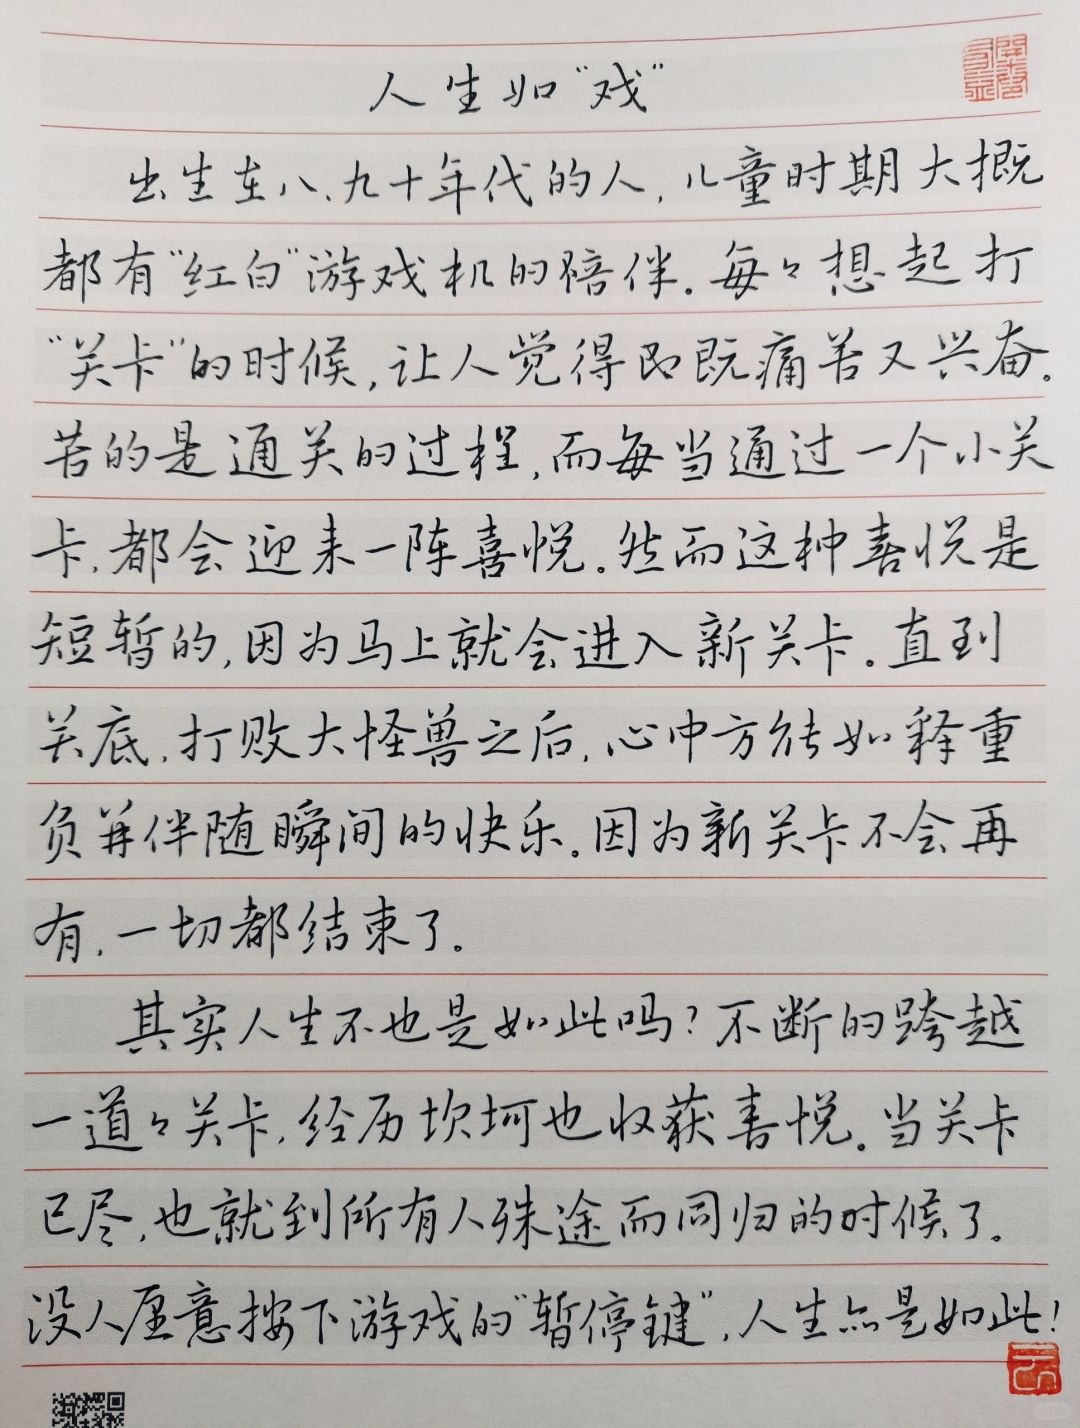 人生如“戏”
出生在八、九十年代的人，儿童时期大概
都有“红白”游戏机的陪伴。每々想起打
“关卡”的时候，让人觉得即既痛苦又兴奋。
苦的是通关的过程，而每当通过一个小关
卡，都会迎来一阵喜悦。然而这种喜悦是
短暂的，因为马上就会进入新关卡。直到
关底，打败大怪兽之后，心中方能如释重
负并伴随瞬间的快乐。因为新关卡不会再
有，一切都结束了。
其实人生不也是如此吗？不断的跨越
一道々关卡，经历坎坷也收获喜悦。当关卡
已尽，也就到所有人殊途而同归的时候了。
没人愿意按下游戏的“暂停键”，人生亦是如此！